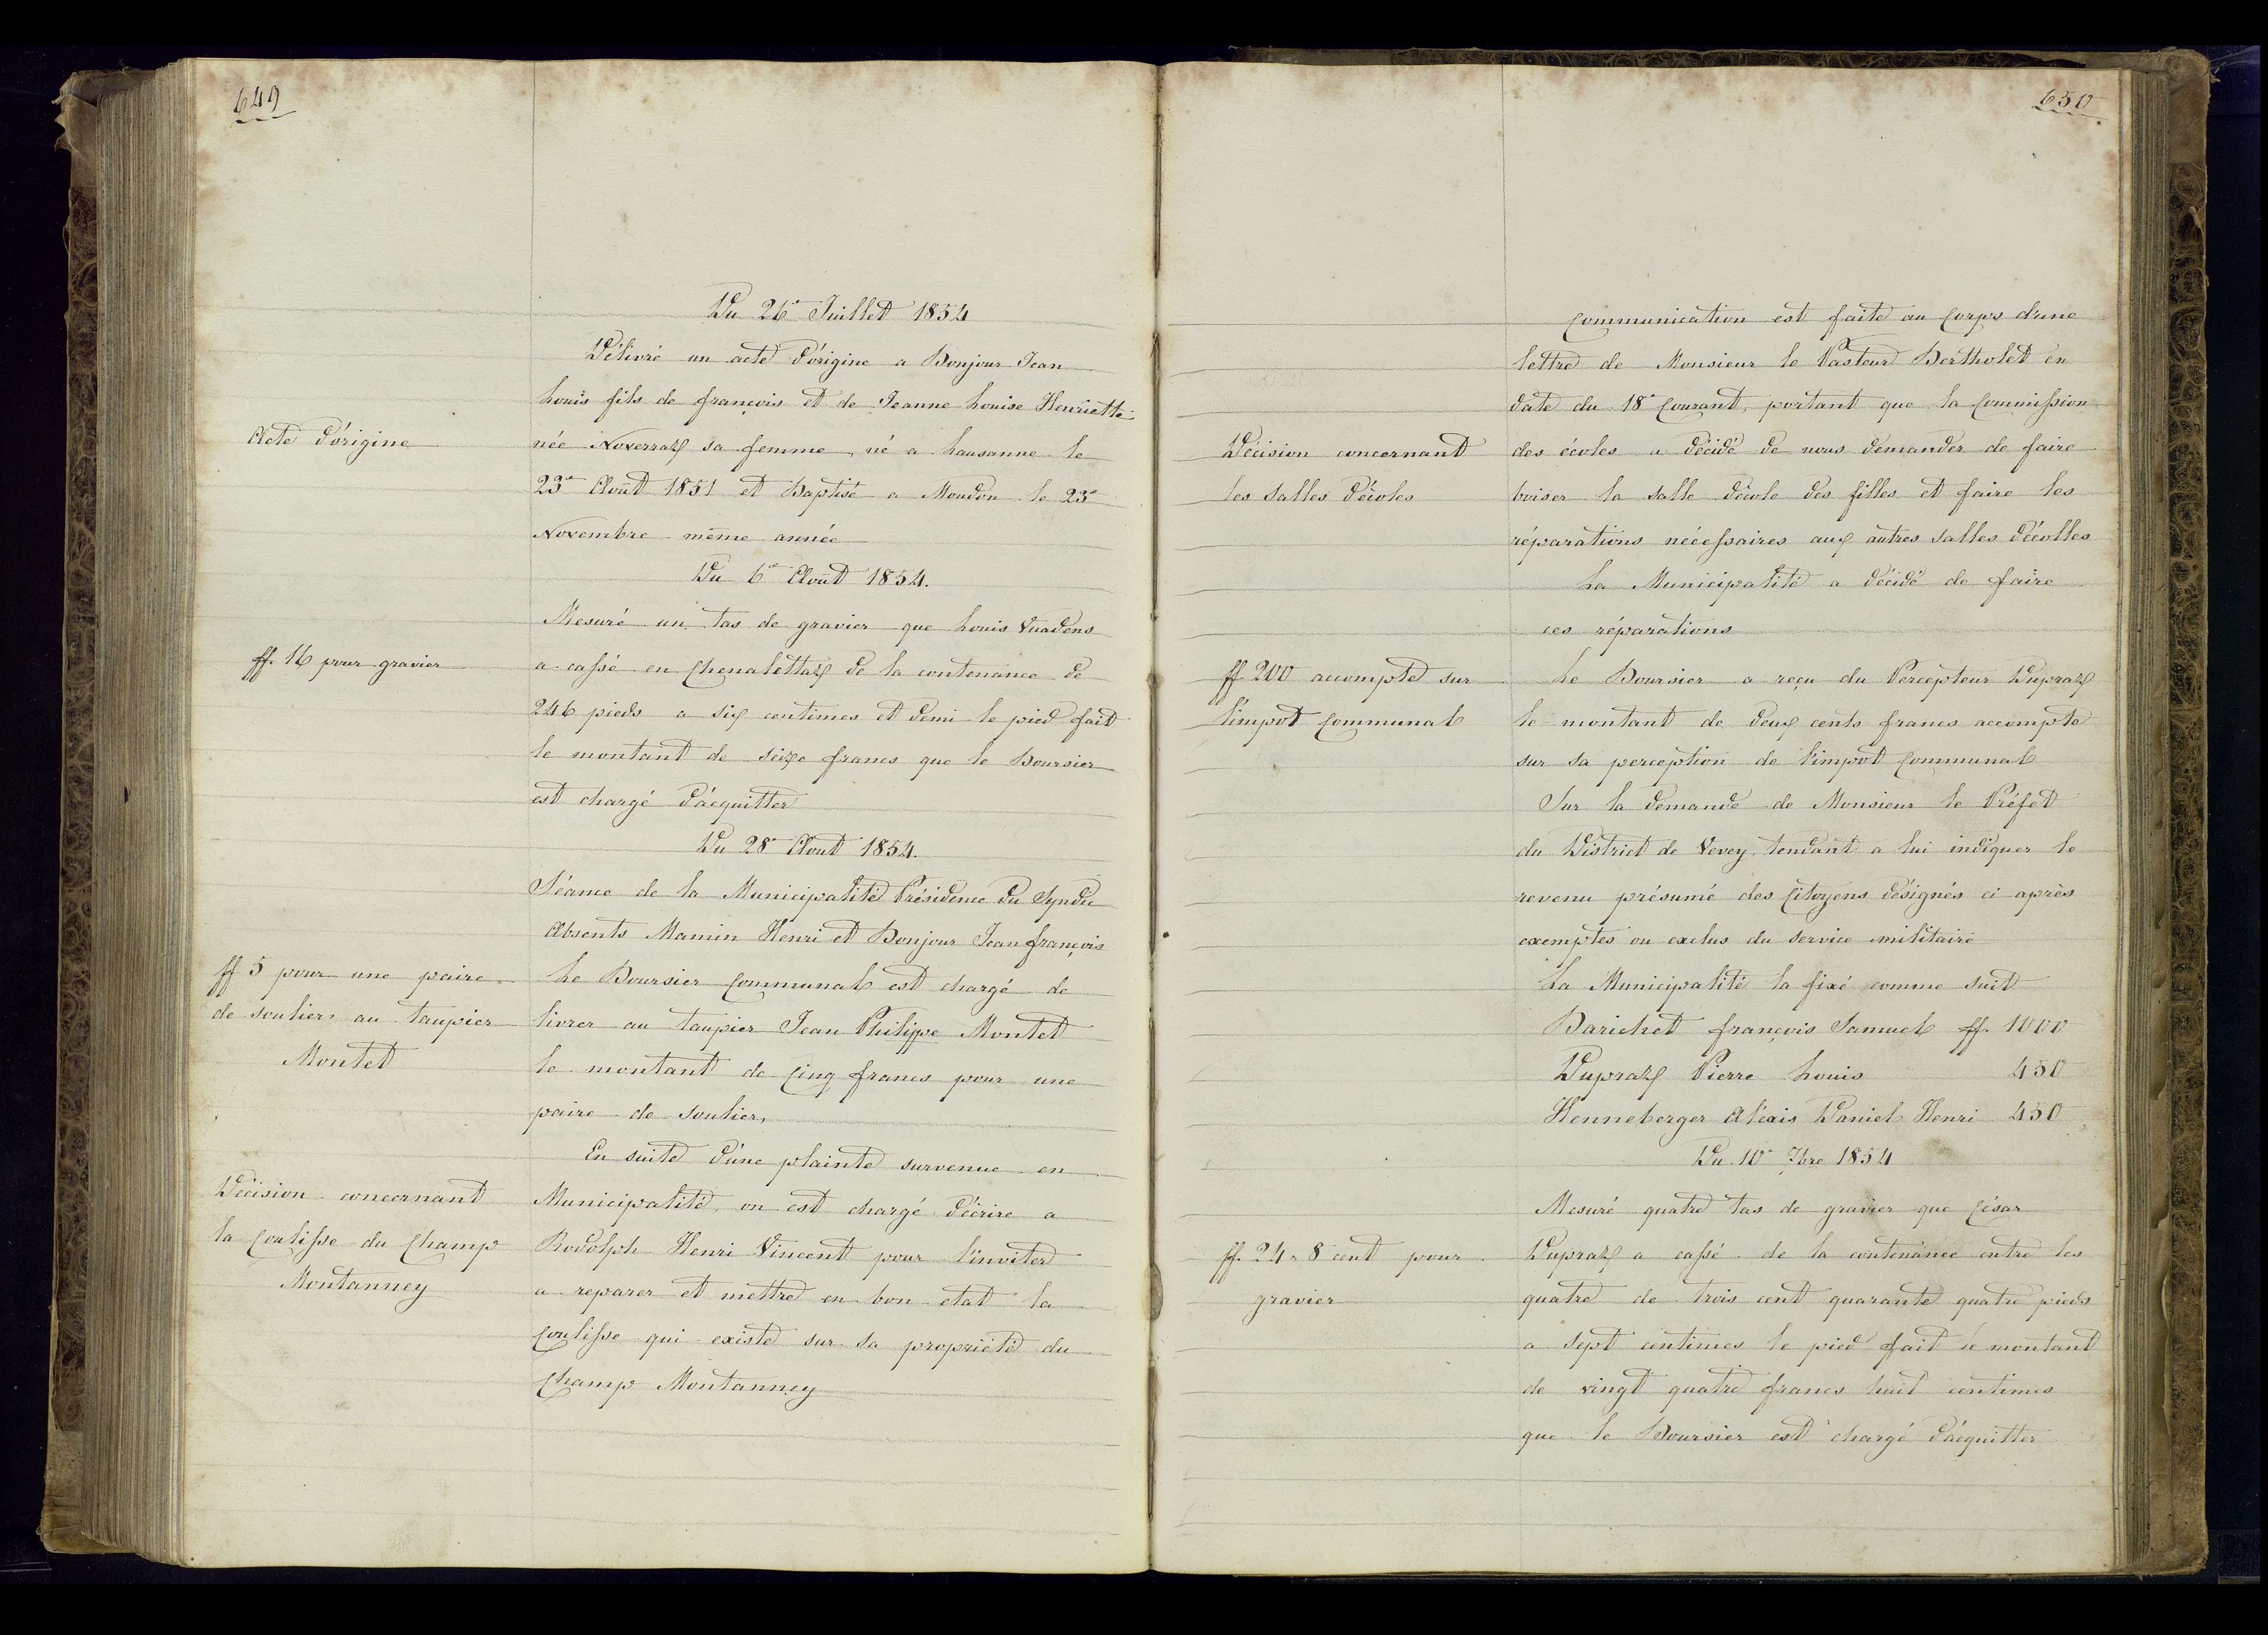 649
Du 26e Juillet 1854
Délivré un acte d'origine a Bonjour Jean
Louis fils de françois et de Jeanne Louise Henriette
Acte d'origine
née Noverraz sa femme, né a Lausanne le
23e Août 1851 et Baptisé a Moudon le 23e
Novembre même année
Du 6e Août 1854.
Mesuré un tas de gravier que Louis Vuadens
ff. 16 pour gravier
a cassé en Chenalettaz de la contenance de
246 pieds a six centimes et demi le pied fait
le montant de seize francs que le Boursier
est chargé d'acquitter
Du 28e Aout 1854.
Séance de la Municipalité Présidence du Syndic
Absents Mamin Henri et Bonjour Jean françois
ff 5 pour une paire
de souliers au taupier
Montet
Le Boursier Communal est chargé de
livrer au taupier Jean Philippe Montet
le montant de Cinq francs pour une
paire de soulier,
En suite d'une plainte survenue en
Décision concernant
la Coulisse du Champ
Montanney
Municipalité, on est chargé d'écrire a
Rodolph Henri Vincent pour l'inviter
a reparer et mettre en bon etat la
Coulisse qui existe sur sa propriété du
Champ Montanney
650
Communication est faite au Corps d'une
lettre de Monsieur le Pasteur Bertholet en
date du 18e Courant, portant que la Commission
Décision concernant
les Salles d'écoles
des écoles a décidé de nous demander de faire
boiser la salle d'école des filles et faire les
réparations nécessaires aux autres salles d'écolles
La Municipalité a décidé de faire
ces réparations
ff 200 accompte sur
l'impot Communal
Le Boursier a reçu du Percepteur Dupraz
le montant de deux cents francs accompte
sur sa perception de l'impot Communal
Sur la demande de Monsieur le Préfet
du District de Vevey, tendant a lui indiquer le
revenu présumé des Citoyens désignés ci après
exemptés ou exclus du service militaire
La Municipalité la fixé comme suit
Barichet françois Samuel ff. 1000
Dupraz Pierre Louis 450
Henneberger Alexis Daniel Henri 450
Du 10e 7bre 1854
Mesuré quatre tas de gravier que César
ff. 24 " 8 cent pour
gravier
Dupraz a cassé de la contenance entre les
quatre de trois cent quarante quatre pieds
a sept centimes le pied fait le montant
de vingt quatre francs huit centimes
que le Boursier est chargé d'acquitter